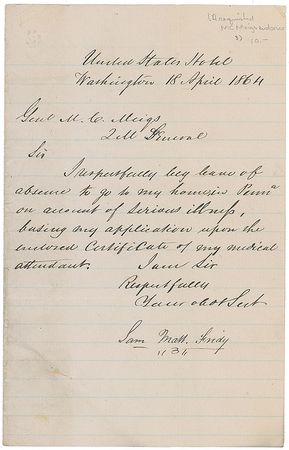 United States Hotel
Washington 18 April 1864
Genl M. C. Meigs
2 M General
Sir
I respectfully beg leave of
absence to go to my home in Penna
on account of serious illness,
basing my application upon the
enclosed Certificate of my medical
attendant. I am Sir
Respectfully
Your obdt Sert
Sam Matt.
"3"